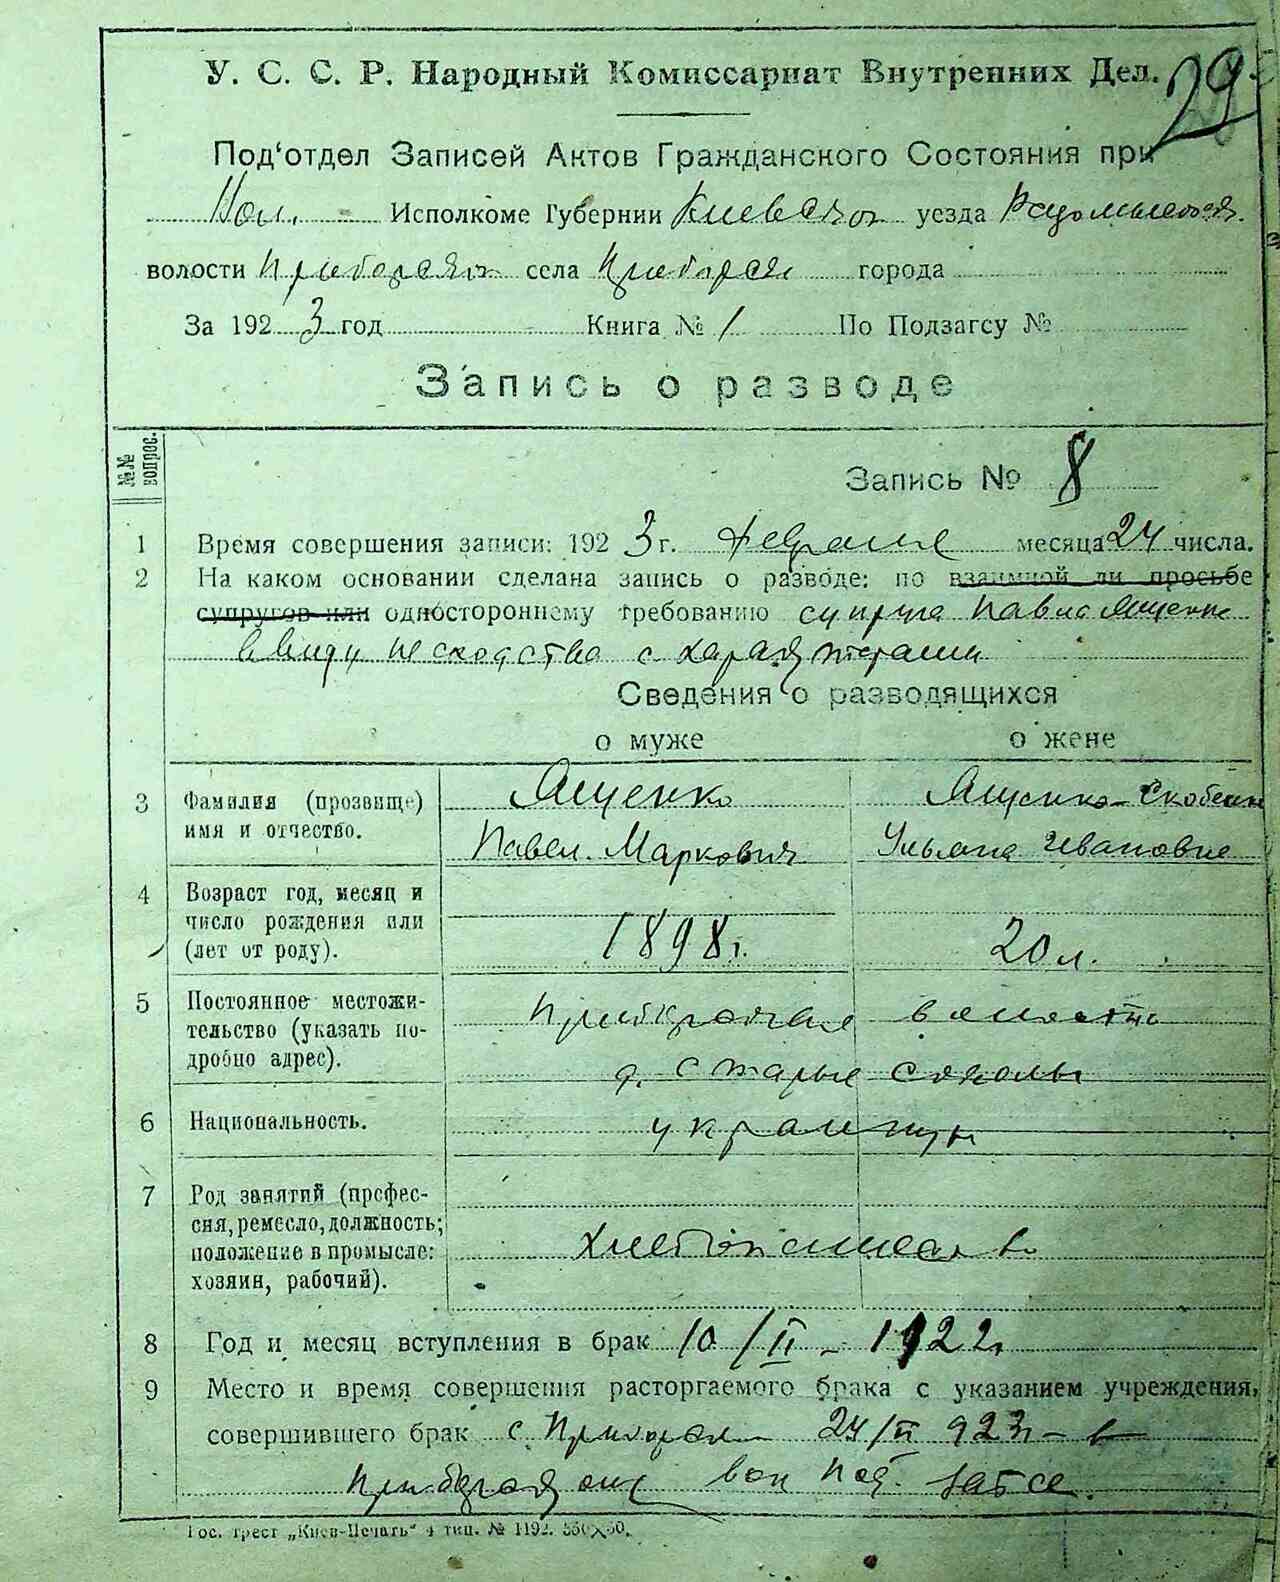 29.
У. С. С. Р. Народный Комиссариат Внутренних Дел.
Под‘отдел Записей Актов Гражданского Состояния при
Вол. Исполкоме Губернии Киевской уезда Радомысльск.
волости Приборской села Приборск города
За 192 3 год Книга № 1 По Подзагсу №
Запись о разводе
№№ вопрос.
Запись № 8
1 Время совершения записи: 192 3 г. Февраля месяца 24 числа.
2 На каком основании сделана запись о разводе: по взаимной ли просьбе
супругов или одностороннему требованию супруга Павла Ященко
ввиду несходства с характерами
Сведения о разводящихся
о муже о жене
3 Фамилия (прозвище) Ященко Ященко-Скобелин
имя и отчество. Павел Маркович Ульяна Ивановна
4 Возраст год, месяц и
число рождения или 1898 г. 20 л.
(лет от роду).
5 Постоянное местожи- волость
тельство (указать по-
дробно адрес). д. Старые Соколы
6 Национальность. украинцы
7 Род занятий (профес-
сия, ремесло, должность;
положение в промысле: Хлебопашество
хозяин, рабочий).
8 Год и месяц вступления в брак 10/II - 1922 г.
9 Место и время совершения расторгаемого брака с указанием учреждения,
совершившего брак с. Приборск 24/II 923 г. в
Приборском вол под. загсе.
Гос. трест „Киев-Печать“ 4 тип. № 1192. 550×50.